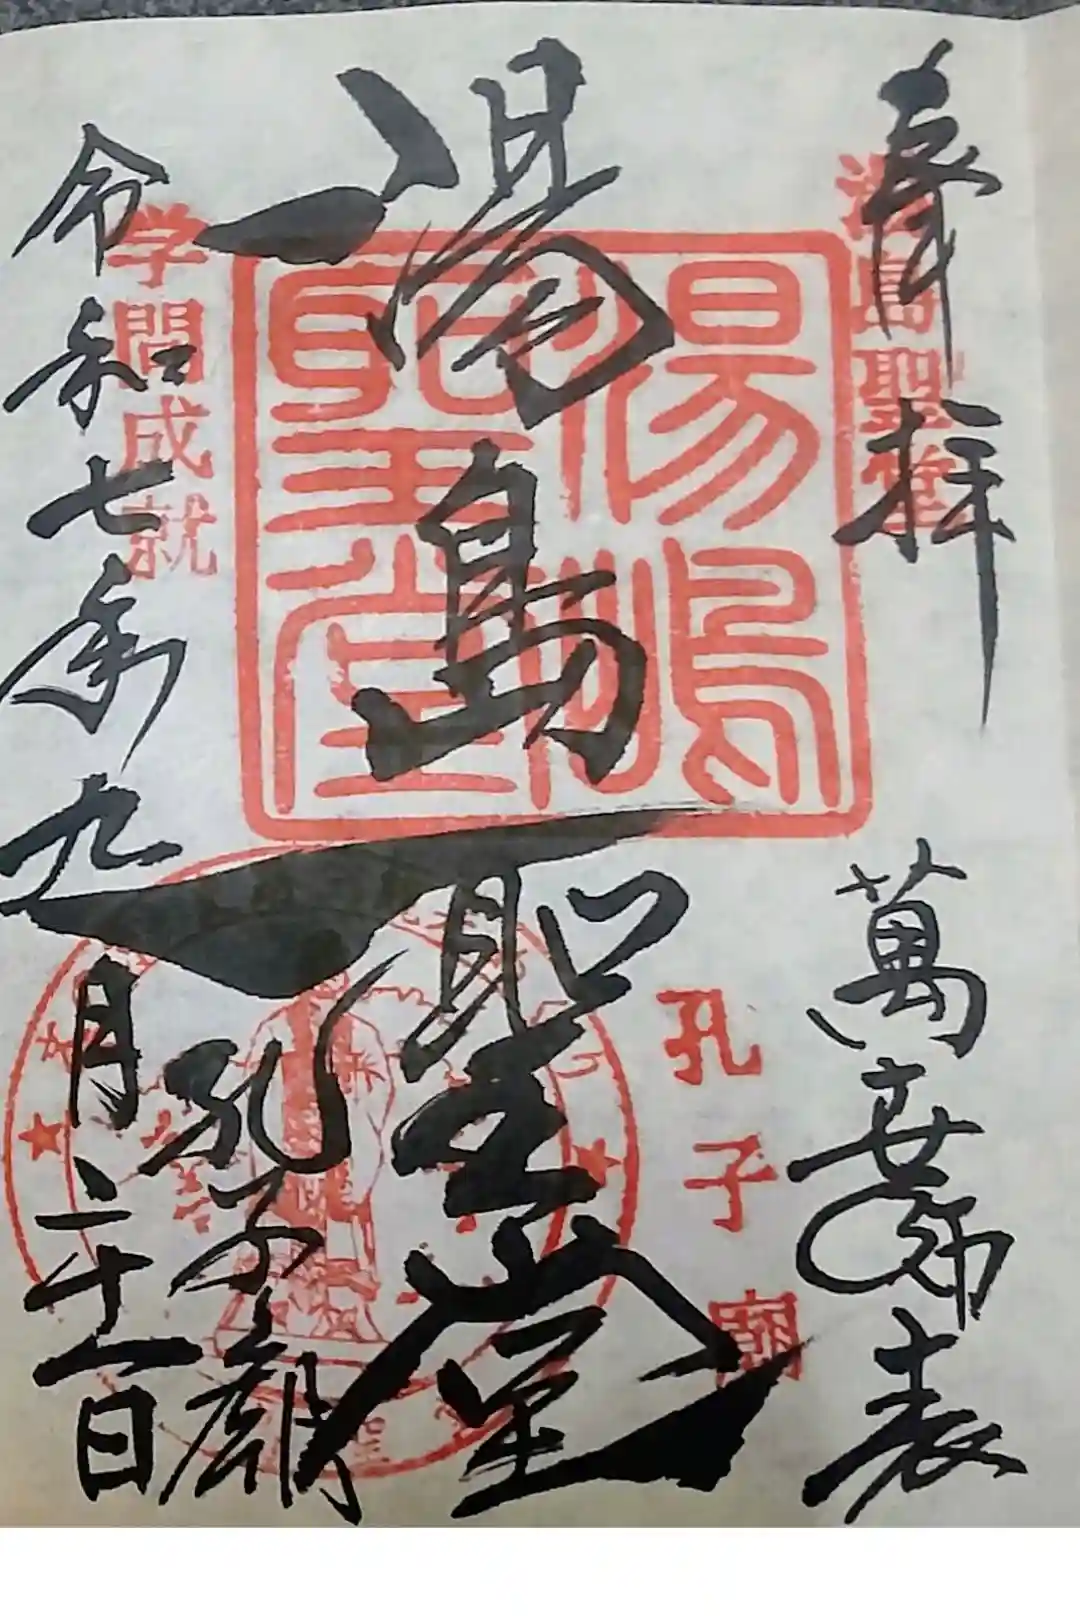 奉拝
萬世師表
湯島聖堂
湯島聖堂
湯島聖堂
孔子廟
孔子廟
学問成就
令和七年九月二十一日